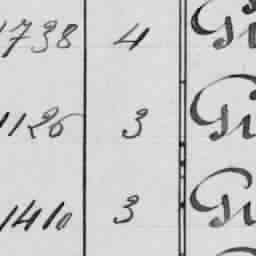 1738 4 Gi
1126 3 Gi
1410 3 Gi